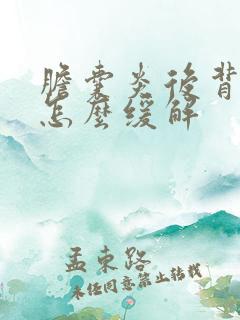 膽囊炎後背
怎麼緩解
孟東路
未任同意禁止轉載